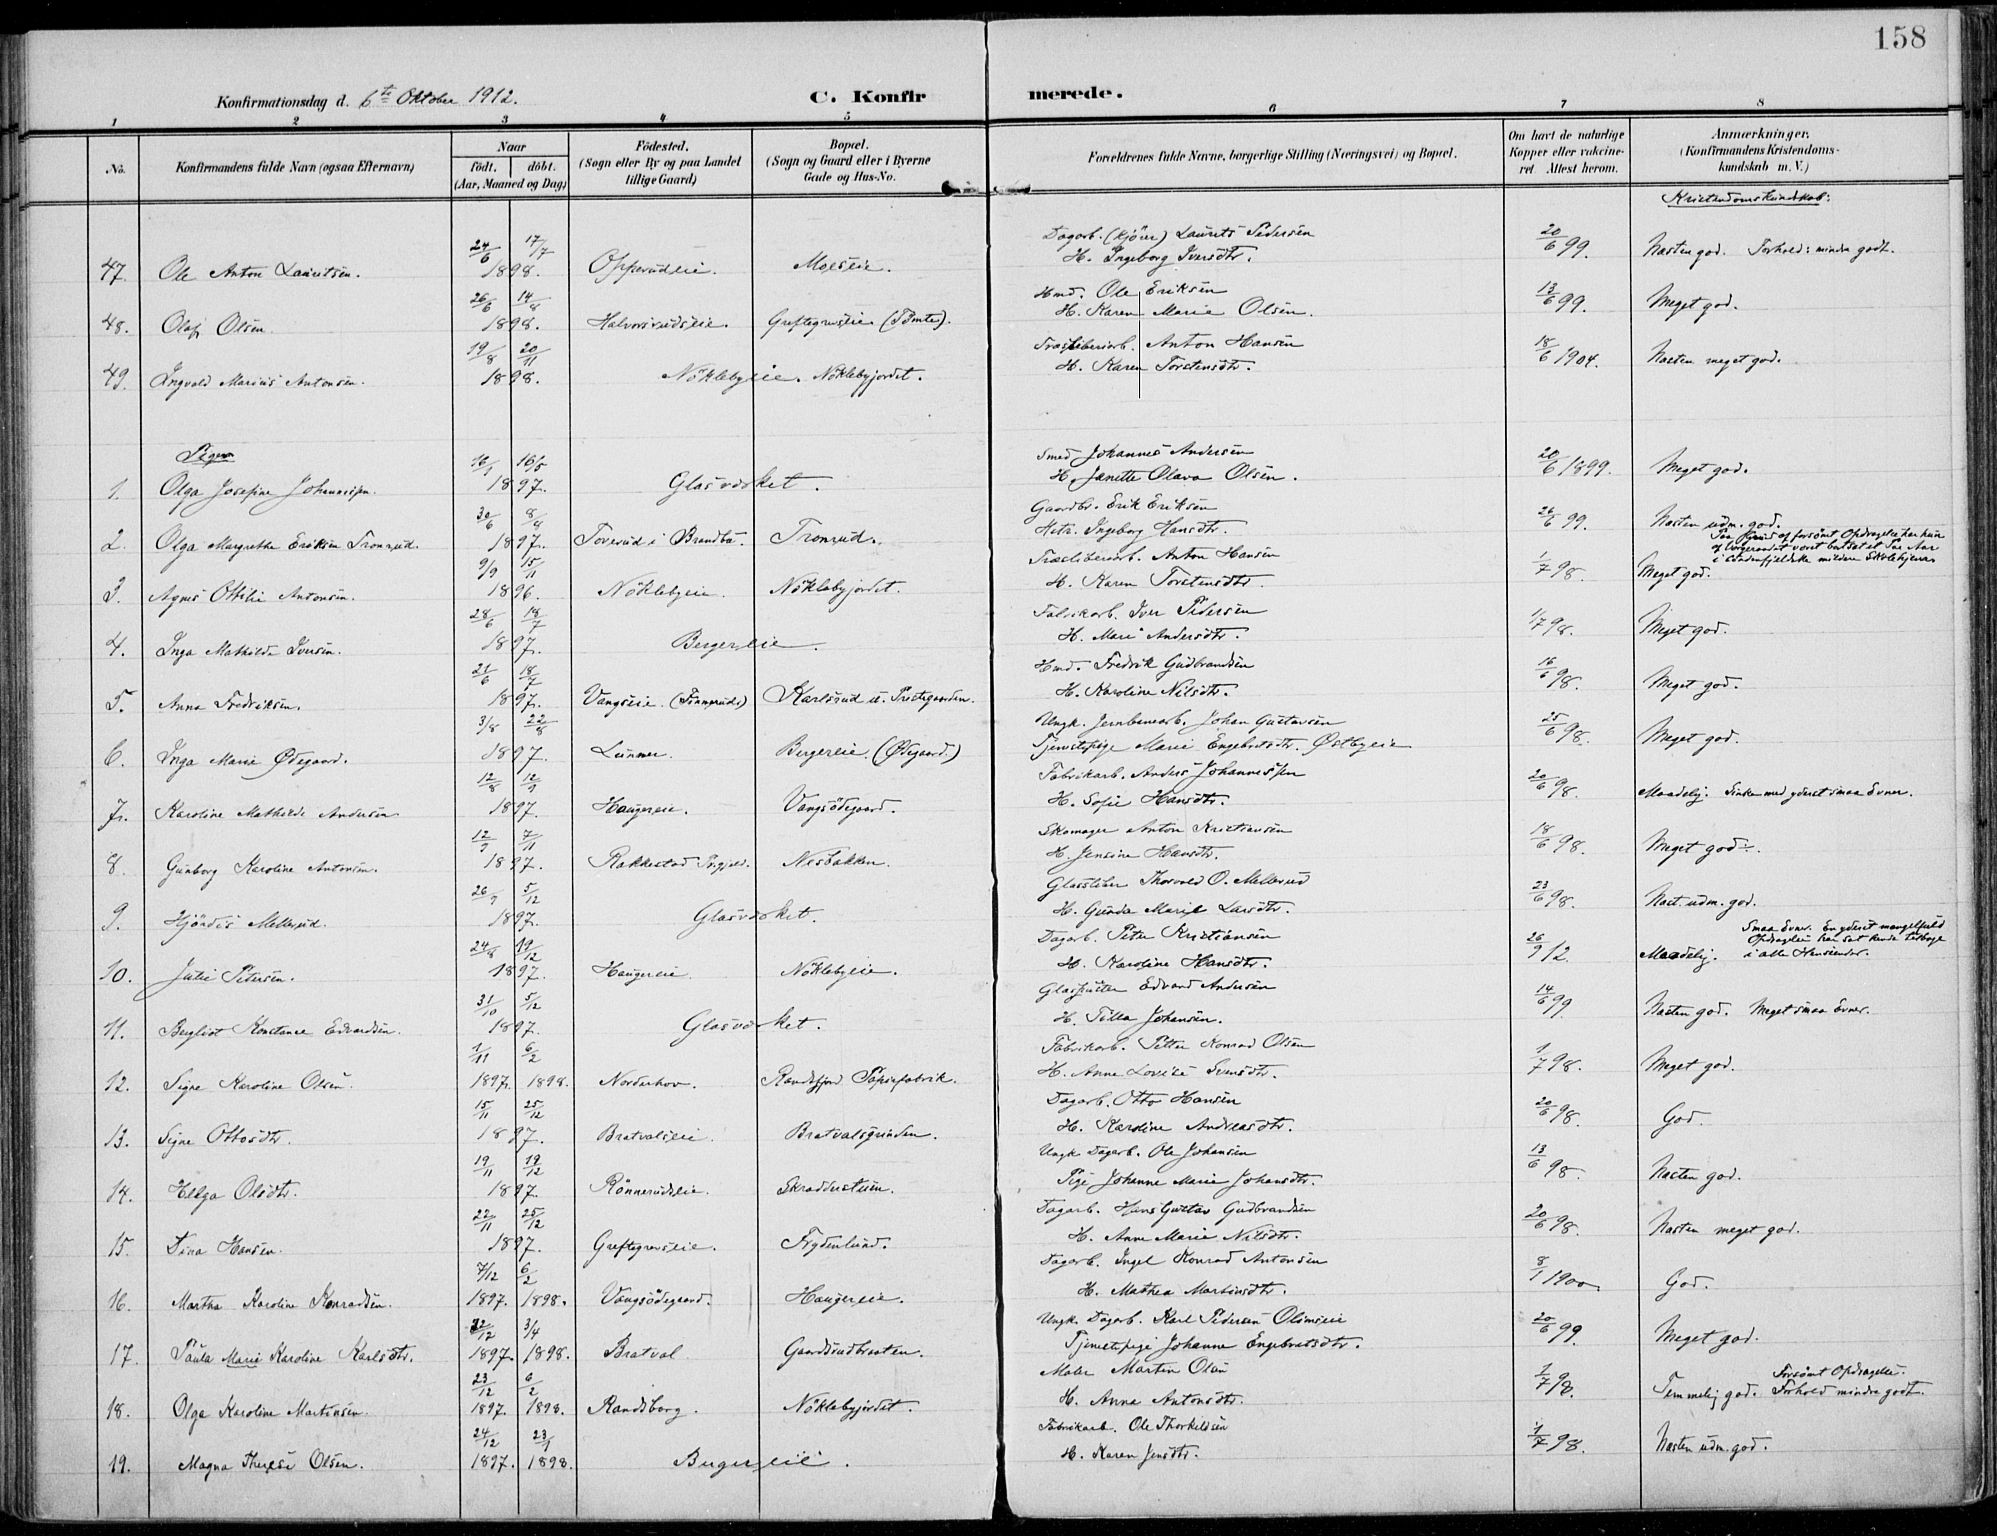 158
Konfirmationsdag d. 6te Oktober 1912. C. Konfirmerede.
1 2 3 4 5 6 7 8
No. Konfirmandens fulde Navn (ogsaa Efternavn) Naar født. døbt. (Aar, Maaned og Dag) Fødested. (Sogn eller By og paa Landet tillige Gaard) Bopæl. (Sogn og Gaard eller i Byerne Gade og Hus-No. Forældrenes fulde Navne, borgerlige Stilling (Næringsvei) og Bopæl. Om havt de naturlige Kopper eller vakcineret. Attest herom. Anmærkninger. (Konfirmandens Kristendomskundskab m. V.)
Kristendomskundskab:
24/6 17/7 Dagarb. (Kjører) Laurits Pedersen 20/6 99.
47. Ole Anton Lauritsen. 1898. Opperudeie. Moeseie. H. Ingeborg Iversdtr. Næsten god. Forhold: mindre godt.
26/6 14/8 Hmd. Ole Eriksen 13/6 99.
48. Olaf Olsen. 1898. Halvorsrudseie. Greftegrevseie (Tomte). H. Karen Marie Olsen. Meget god.
19/8 20/11 Træsliberiarb. Anton Hansen 18/6 1904.
49. Ingvald Marius Antonsen. 1898. Nøklebyeie. Nøklebyjordet. H. Karen Torstensdtr. Næsten meget god.
Piger
16/1 16/5 Smed Johannes Andersen 20/6 1899.
1. Olga Josefine Johannesen. 1897. Glasværket. H. Janette Olava Olsen. Meget god.
30/6 8/9 Gaardbr. Erik Eriksen 26/6 99.
2. Olga Margrethe Eriksen Tronrud. 1897. Toverud i Brandbu. Tronrud. Ingeborg Hansdtr. Næsten udm. god.
9/9 15/11 Træsliberiarb. Anton Hansen 1/7 98.
3. Agnes Ottilie Antonsen. 1896. Nøklebyeie. Nøklebyjordet. H. Karen Torstensdtr. Meget god. Paa Grund af forsømt Opdragelse har hun
28/6 18/7 Fabrikarb. Iver Pedersen 1/7 98.
4. Inga Mathilde Iversen. 1897. Bergereie. H. Mari Andersdtr. Meget god.
21/6 18/7 Hmd. Fredrik Gudbrandsen 16/6 98.
5. Anna Fredriksen. 1897. Vangseie. Karlsrud u. Prestegaarden. H. Karoline Nilsdtr. Meget god.
3/8 22/8 Ungk. Jernbanearb. Johan Gustavsen 25/6 98.
6. Inga Marie Ødegaard. 1897. Lunner. Bergereie. (Ødegaard.) Tjenestepige Marie Engebretsdtr. Østbyeie Meget god.
12/8 12/9 Fabrikarb. Anders Johannessen 20/6 98.
7. Karoline Mathilde Andersen. 1897. Haugereie. Vangsødegaard. H. Sofie Hansdtr. Maadelig. Sinke med yderst smaa Evner.
12/9 7/11 Skomager Anton Kristiansen 18/6 98.
8. Gunborg Karoline Antonsen. 1897. Rakkestad Prgjeld. Nesbakken. H. Jensine Hansdtr. Meget god÷.
26/9 5/12 Glassliber Thorvald O. Mellerud 23/6 98.
9. Hjørdis Mellerud. 1897. Glasværket. H. Gunda Marie Larsdtr. Næst. udm. god.
24/8 19/12 Dagarb. Peter Kristiansen 26/9 12. Smaa Evner. En yderst mangelfuld Opdragelse har sat hende tilbage
10. Julie Petersen. 1897. Haugereie. Nøklebyeie. H. Karoline Hansdtr. Maadelig. i alle Henseender.
31/10 5/12 Glaspuster Edvard Andersen 14/6 99.
11. Bergliot Konstance Edvardsen. 1897. Glasværket. H. Tilla Johansen. Næsten god. Meget smaa Evner.
1/11 6/2 Fabrikarb. Petter Konrad Olsen 1/7 98.
12. Signe Karoline Olsen. 1897. 1898. Norderhov. Randsfjord Papirfabrik. H. Anne Lovise Svensdtr. Meget god.
15/11 25/12 Dagarb. Otto Hansen 20/6 98.
13. Signe Ottosdtr. 1897. Bratvalseie. Bratvalsgrinden. H. Karoline Andreasdtr. God.
19/11 19/12 Ungk. Dagarb. Ole Johansen 13/6 98.
14. Helga Olsdtr. 1897. Rønnerudseie. Skradderstuen. Pige Johanne Marie Johansdtr. Næsten god.
22/11 25/12 Dagarb. Hans Gustav Gudbrandsen 20/6 98.
15. Dina Hansen. 1897. Greftegrevseie. Frydenlund. H. Anne Marie Nilsdtr. Næsten meget god.
7/12 6/2 Dagarb. Ingel Konrad Antonsen 8/1 1900
16. Martha Karoline Konradsen. 1897. 1898. Vangsødegaard. Haugereie. H. Mathea Martinsdtr. God.
22/12 3/4 Ungk. Dagarb. Karl Pedersen Olimseie 20/6 99.
17. Paula Marie Karoline Karlsdtr. 1897. 1898. Bratval Gaardsrudbraaten. Tjenestepige Johanne Engebretsdtr. Meget god.
23/12 6/2 Maler Martin Olsen 1/7 98. Forsømt Opdragelse.
18. Olga Karoline Martinsen. 1897. 1898. Randsborg. Nøklebyjordet. H. Anna Antonsdtr. Temmelig god. Forhold mindre godt.
24/12 23/1 Fabrikarb. Ole Thorkildsen 1/7 98.
19. Magna Therese Olsen. 1897. 1898. Bergereie. H. Karen Jensdtr. Næsten udm. god.